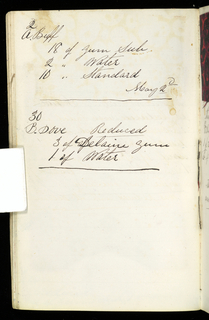 2
Buff
18 of Gum Sub.
2 " Water
10 " Standard
30
Dove Reduced
3 of Delaine Gum
1 of Water